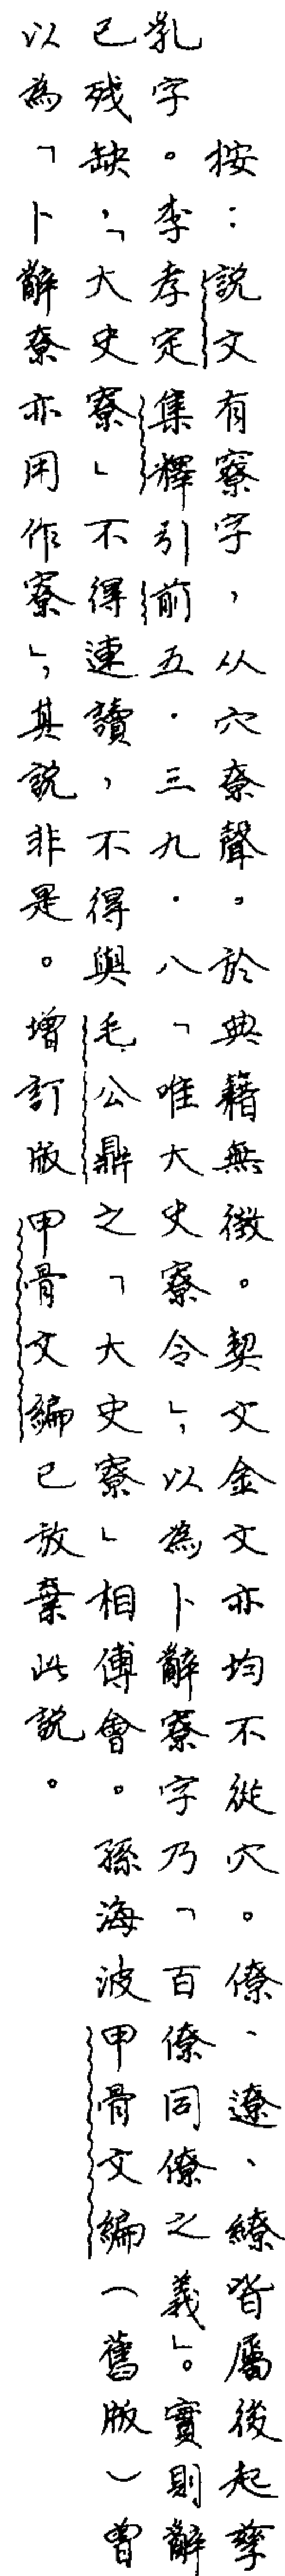 按：說文有寮字，从穴尞聲。於典籍無徵。契文金文亦均不從穴。僚、遼、繚皆屬後起孳
乳字。李孝定集釋引前五．三九．八「唯大史寮令」，以為卜辭寮字乃「百僚同僚之義」。實則辭
已殘缺，「大史寮」不得連讀，不得與毛公鼎之「大史寮」相傅會。孫海波甲骨文編（舊版）曾
以為「卜辭尞亦用作寮」，其說非是。增訂版甲骨文編已放棄此說。